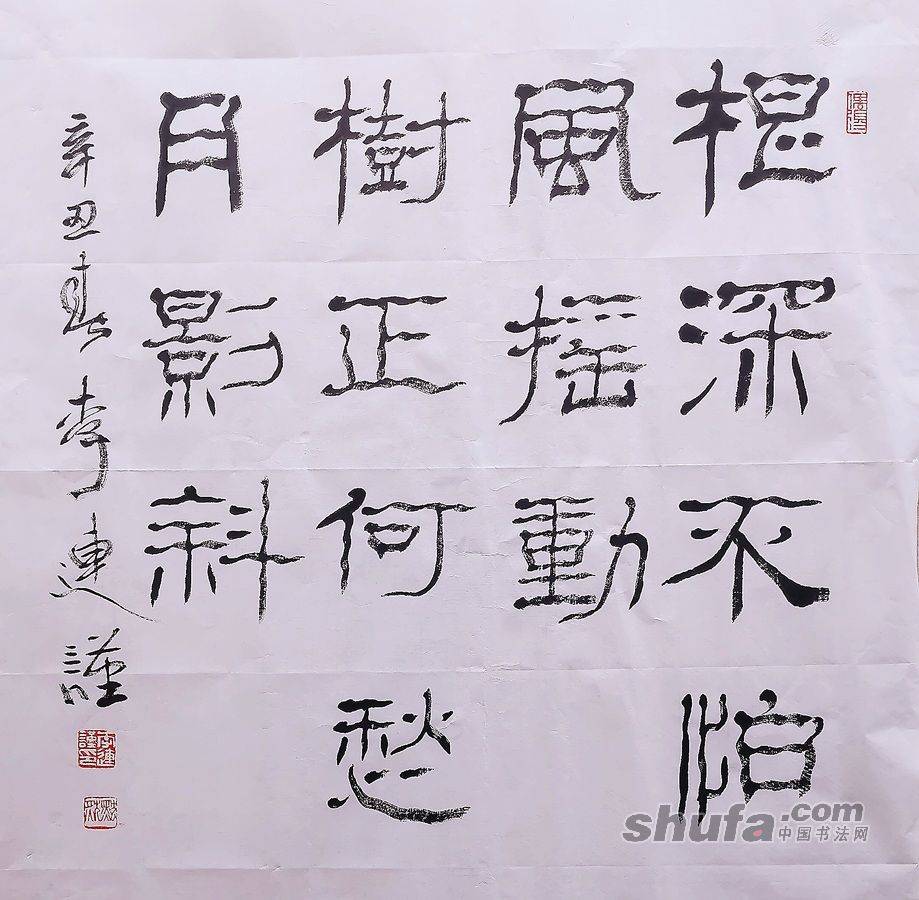 根深不怕
風摇動
樹正何愁
月影斜
辛丑春李連謹
shufa.com
中国书法网